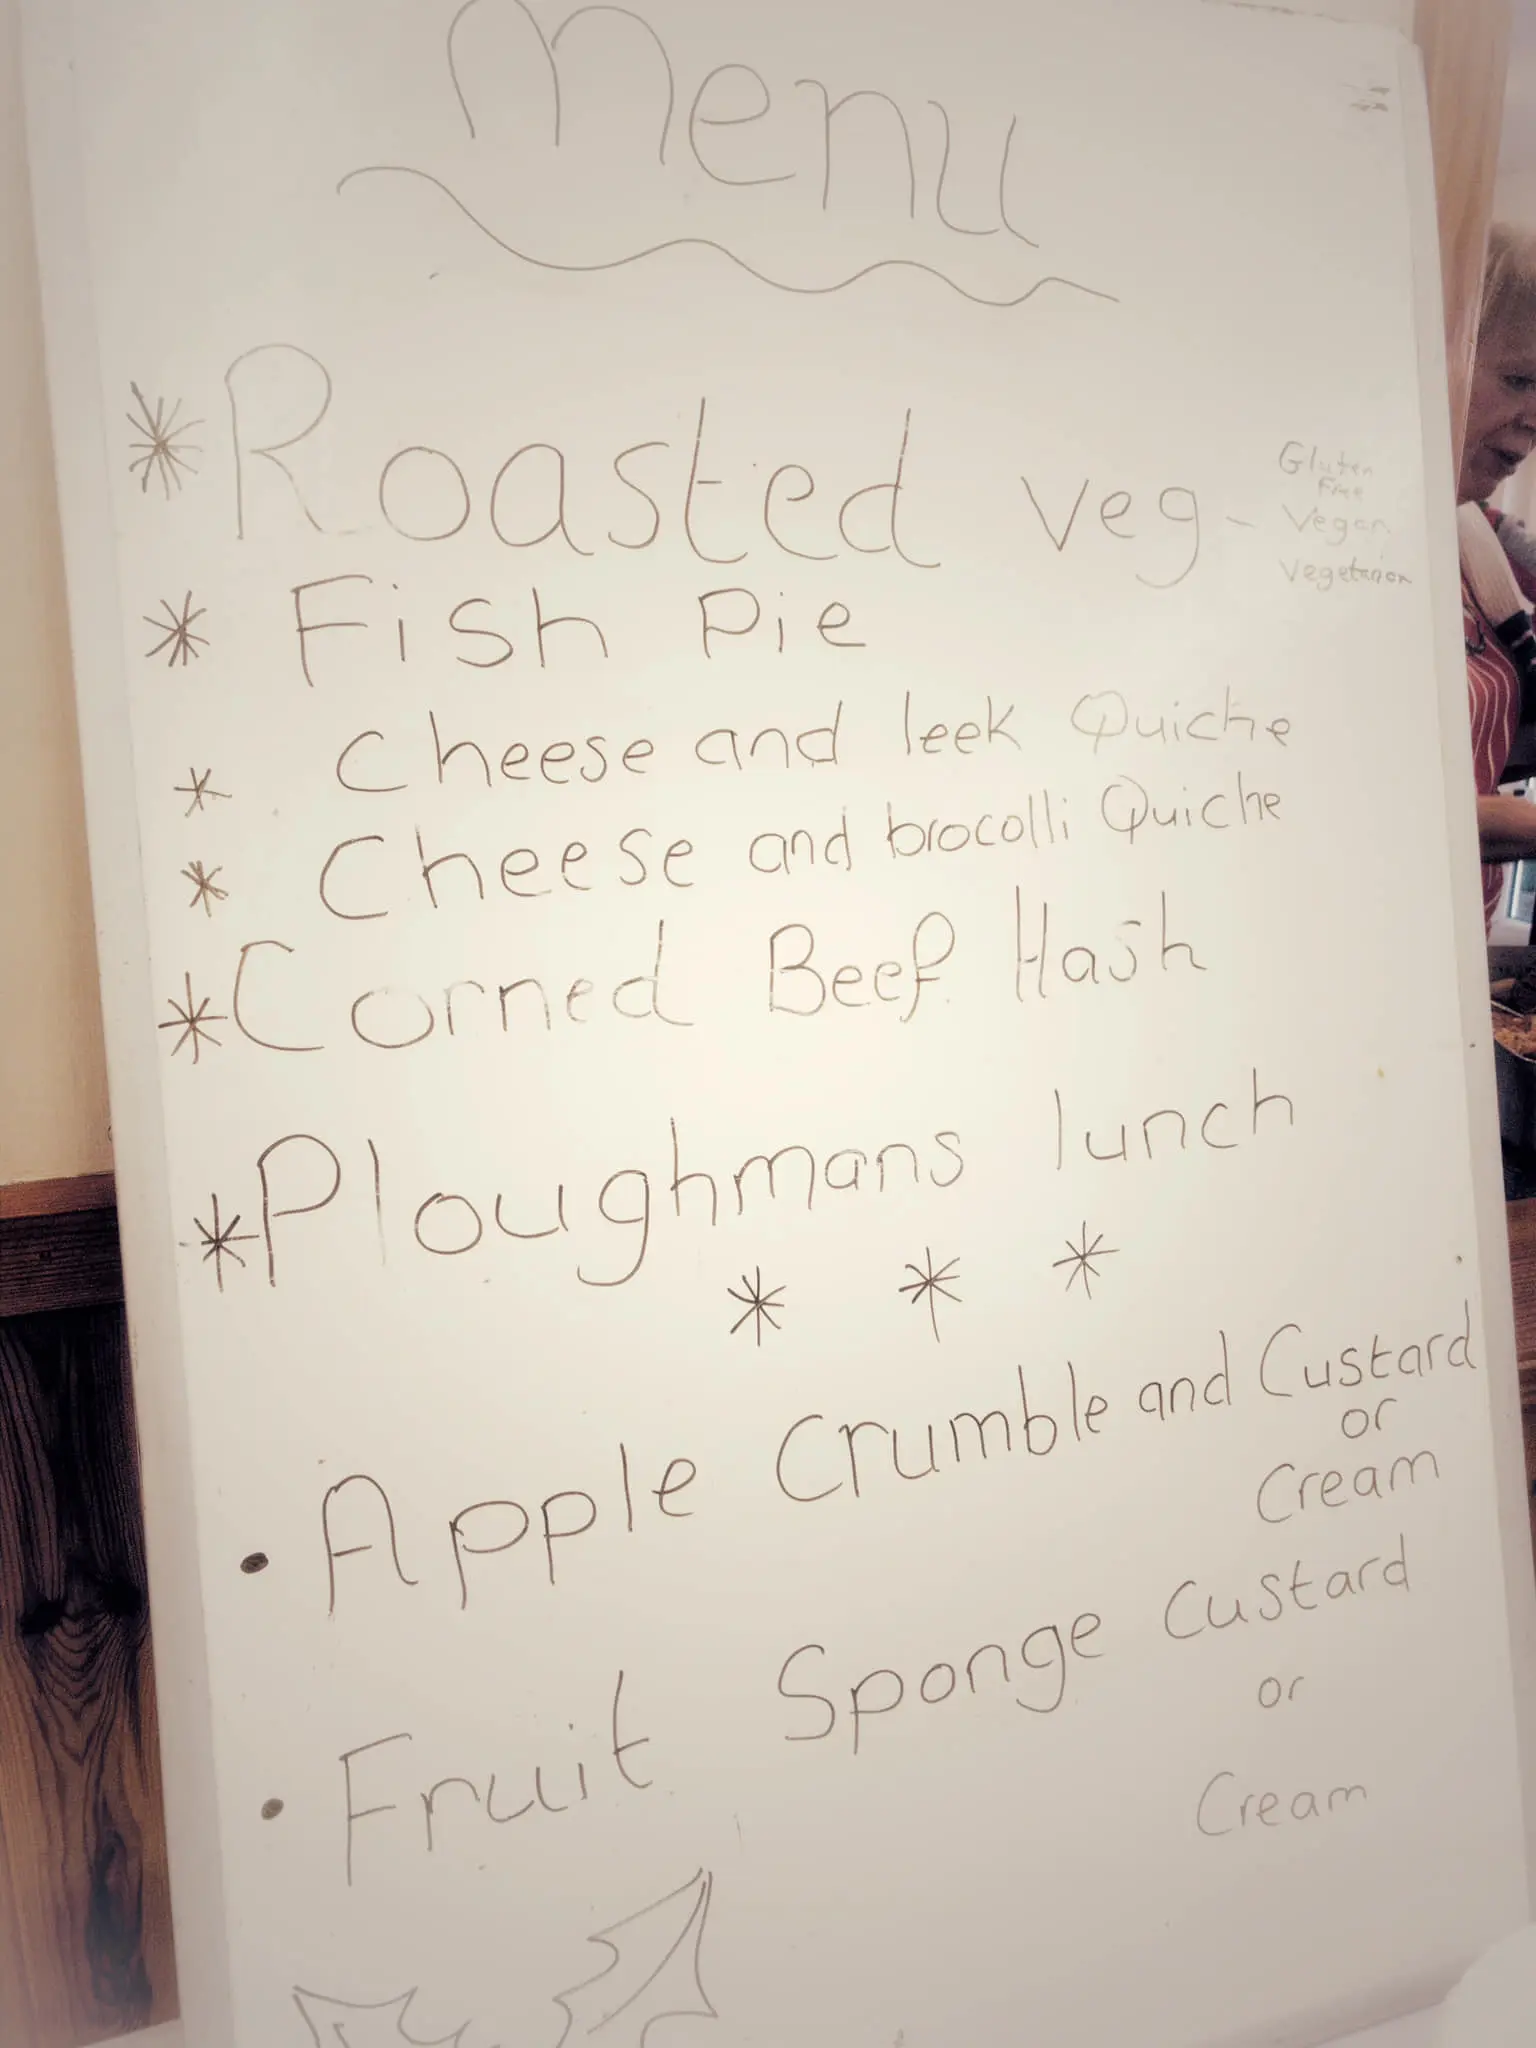 Menu
* Roasted veg - Gluten
Free
Vegan
Vegetarian
* Fish Pie
* Cheese and leek Quiche
* Cheese and brocolli Quiche
* Corned Beef Hash
* Ploughmans lunch
* * *
• Apple Crumble and Custard
or
Cream
• Fruit Sponge Custard
or
Cream